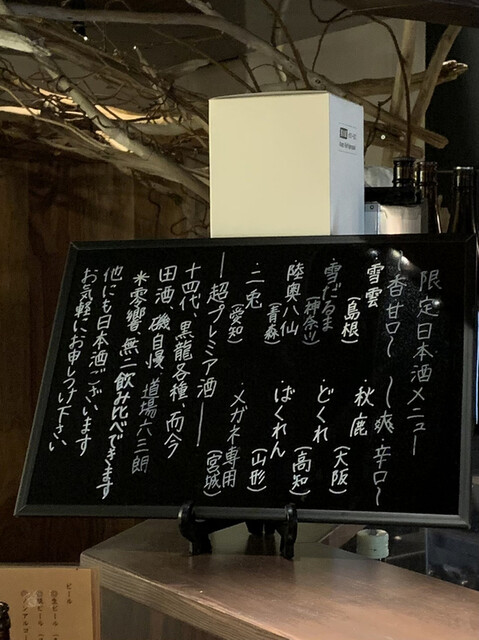 限定日本酒メニュー
〜香甘口〜
〜爽・辛口〜
雪雲(島根)
・秋鹿(大阪)
・雪だるま(神奈川)
・どくれ(高知)
陸奥八仙(青森)
・ばくれん(山形)
・二兎(愛知)
・メガネ専用(宮城)
—超プレミア酒—
十四代、黒龍各種、而今
田酒、磯自慢、道場六三郎
*零響、無二飲み比べできます
他にも日本酒ございます
お気軽にお申しつけ下さい
ビール